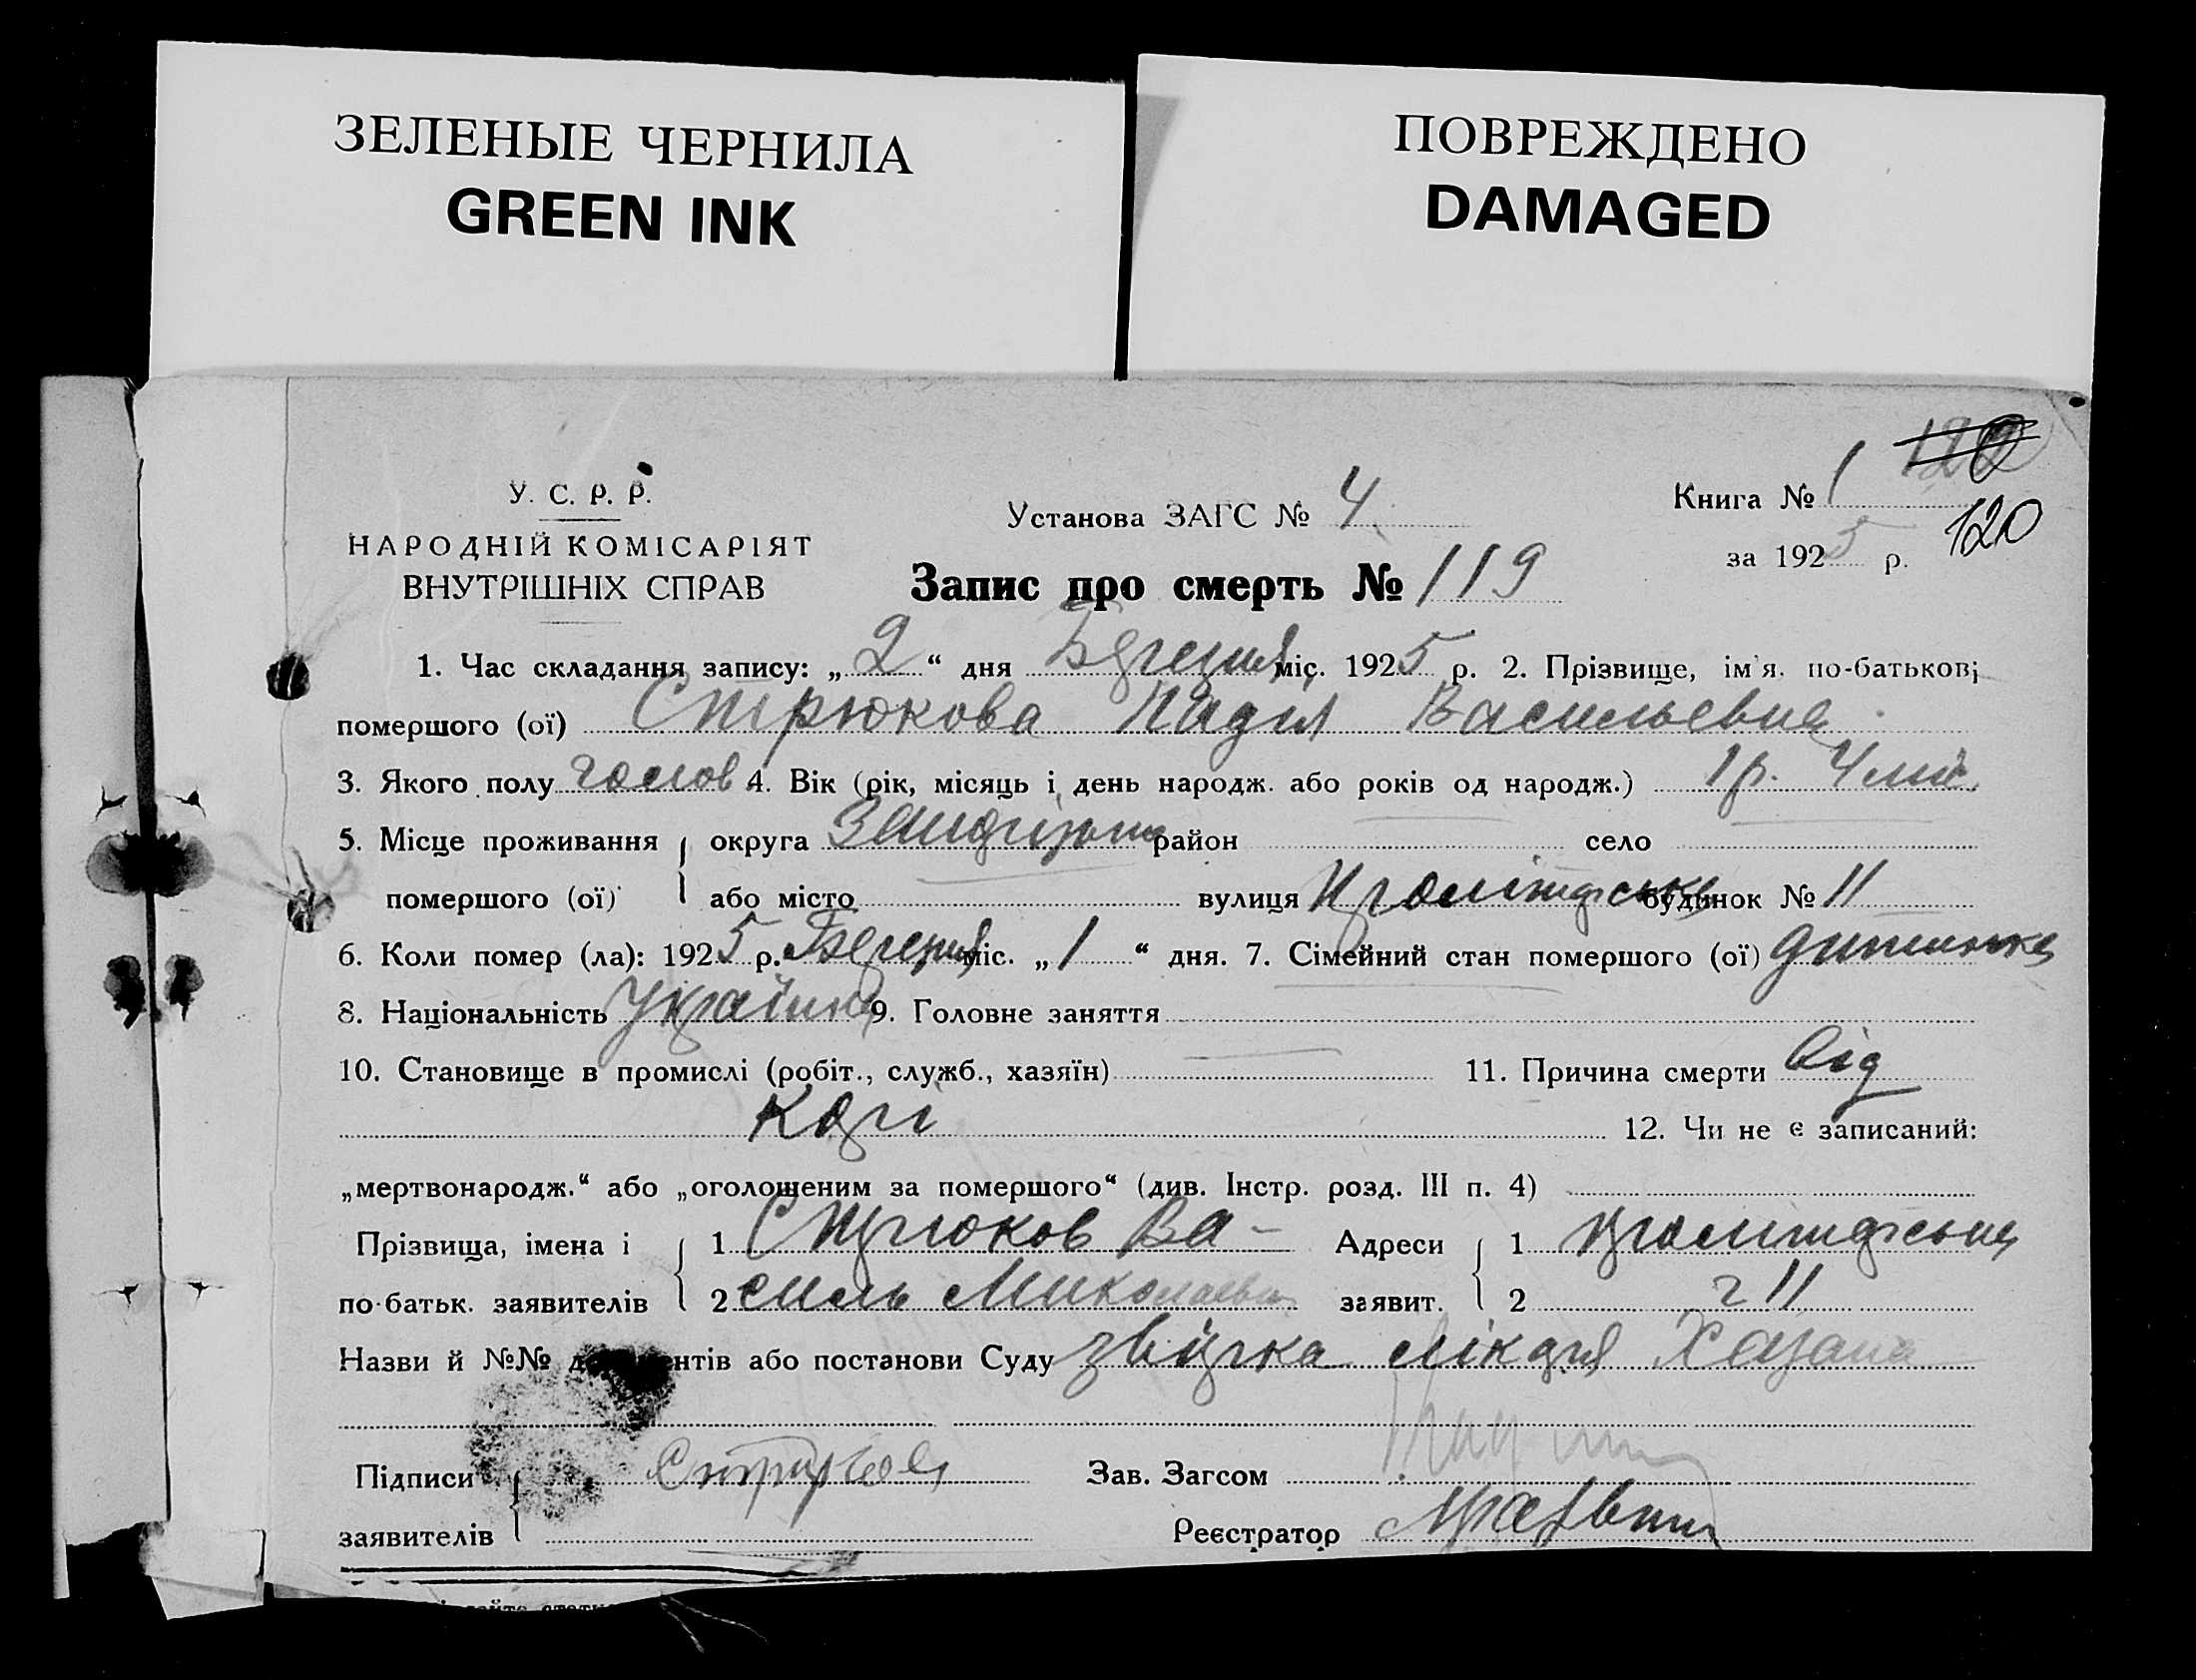 ЗЕЛЕНЫЕ ЧЕРНИЛА
GREEN INK
ПОВРЕЖДЕНО
DAMAGED
У. С. Р. Р.
НАРОДНІЙ КОМІСАРІЯТ
ВНУТРІШНІХ СПРАВ
Установа ЗАГС № 4
Книга № 1
120
за 1925 р.
Запис про смерть № 119
1. Час складання запису: „2“ дня Березня міс. 1925 р. 2. Прізвище, ім'я, по-батькові
помершого (ої) Стрюкова Надія Васильевна
3. Якого полу 4. Вік (рік, місяць і день народж. або років од народж.) 1 р. 4 міс.
5. Місце проживання округа район село
помершого (ої) або місто вулиця будинок № 11
6. Коли помер (ла): 1925 р. Березня міс. „1“ дня. 7. Сімейний стан помершого (ої) дитинка
8. Національність Українка 9. Головне заняття
10. Становище в промислі (робіт., служб., хазяїн) 11. Причина смерти від
корі
12. Чи не є записаний:
„мертвонародж.“ або „оголошеним за помершого“ (див. Інстр. розд. III п. 4)
Прізвища, імена і 1 Стрюков Ва- Адреси 1
по-батьк. заявителів 2 силь Миколаевич заявит. 2 11
Назви й №№ документів або постанови Суду звістка лікаря Хазана
Підписи Зав. Загсом
заявителів Реєстратор